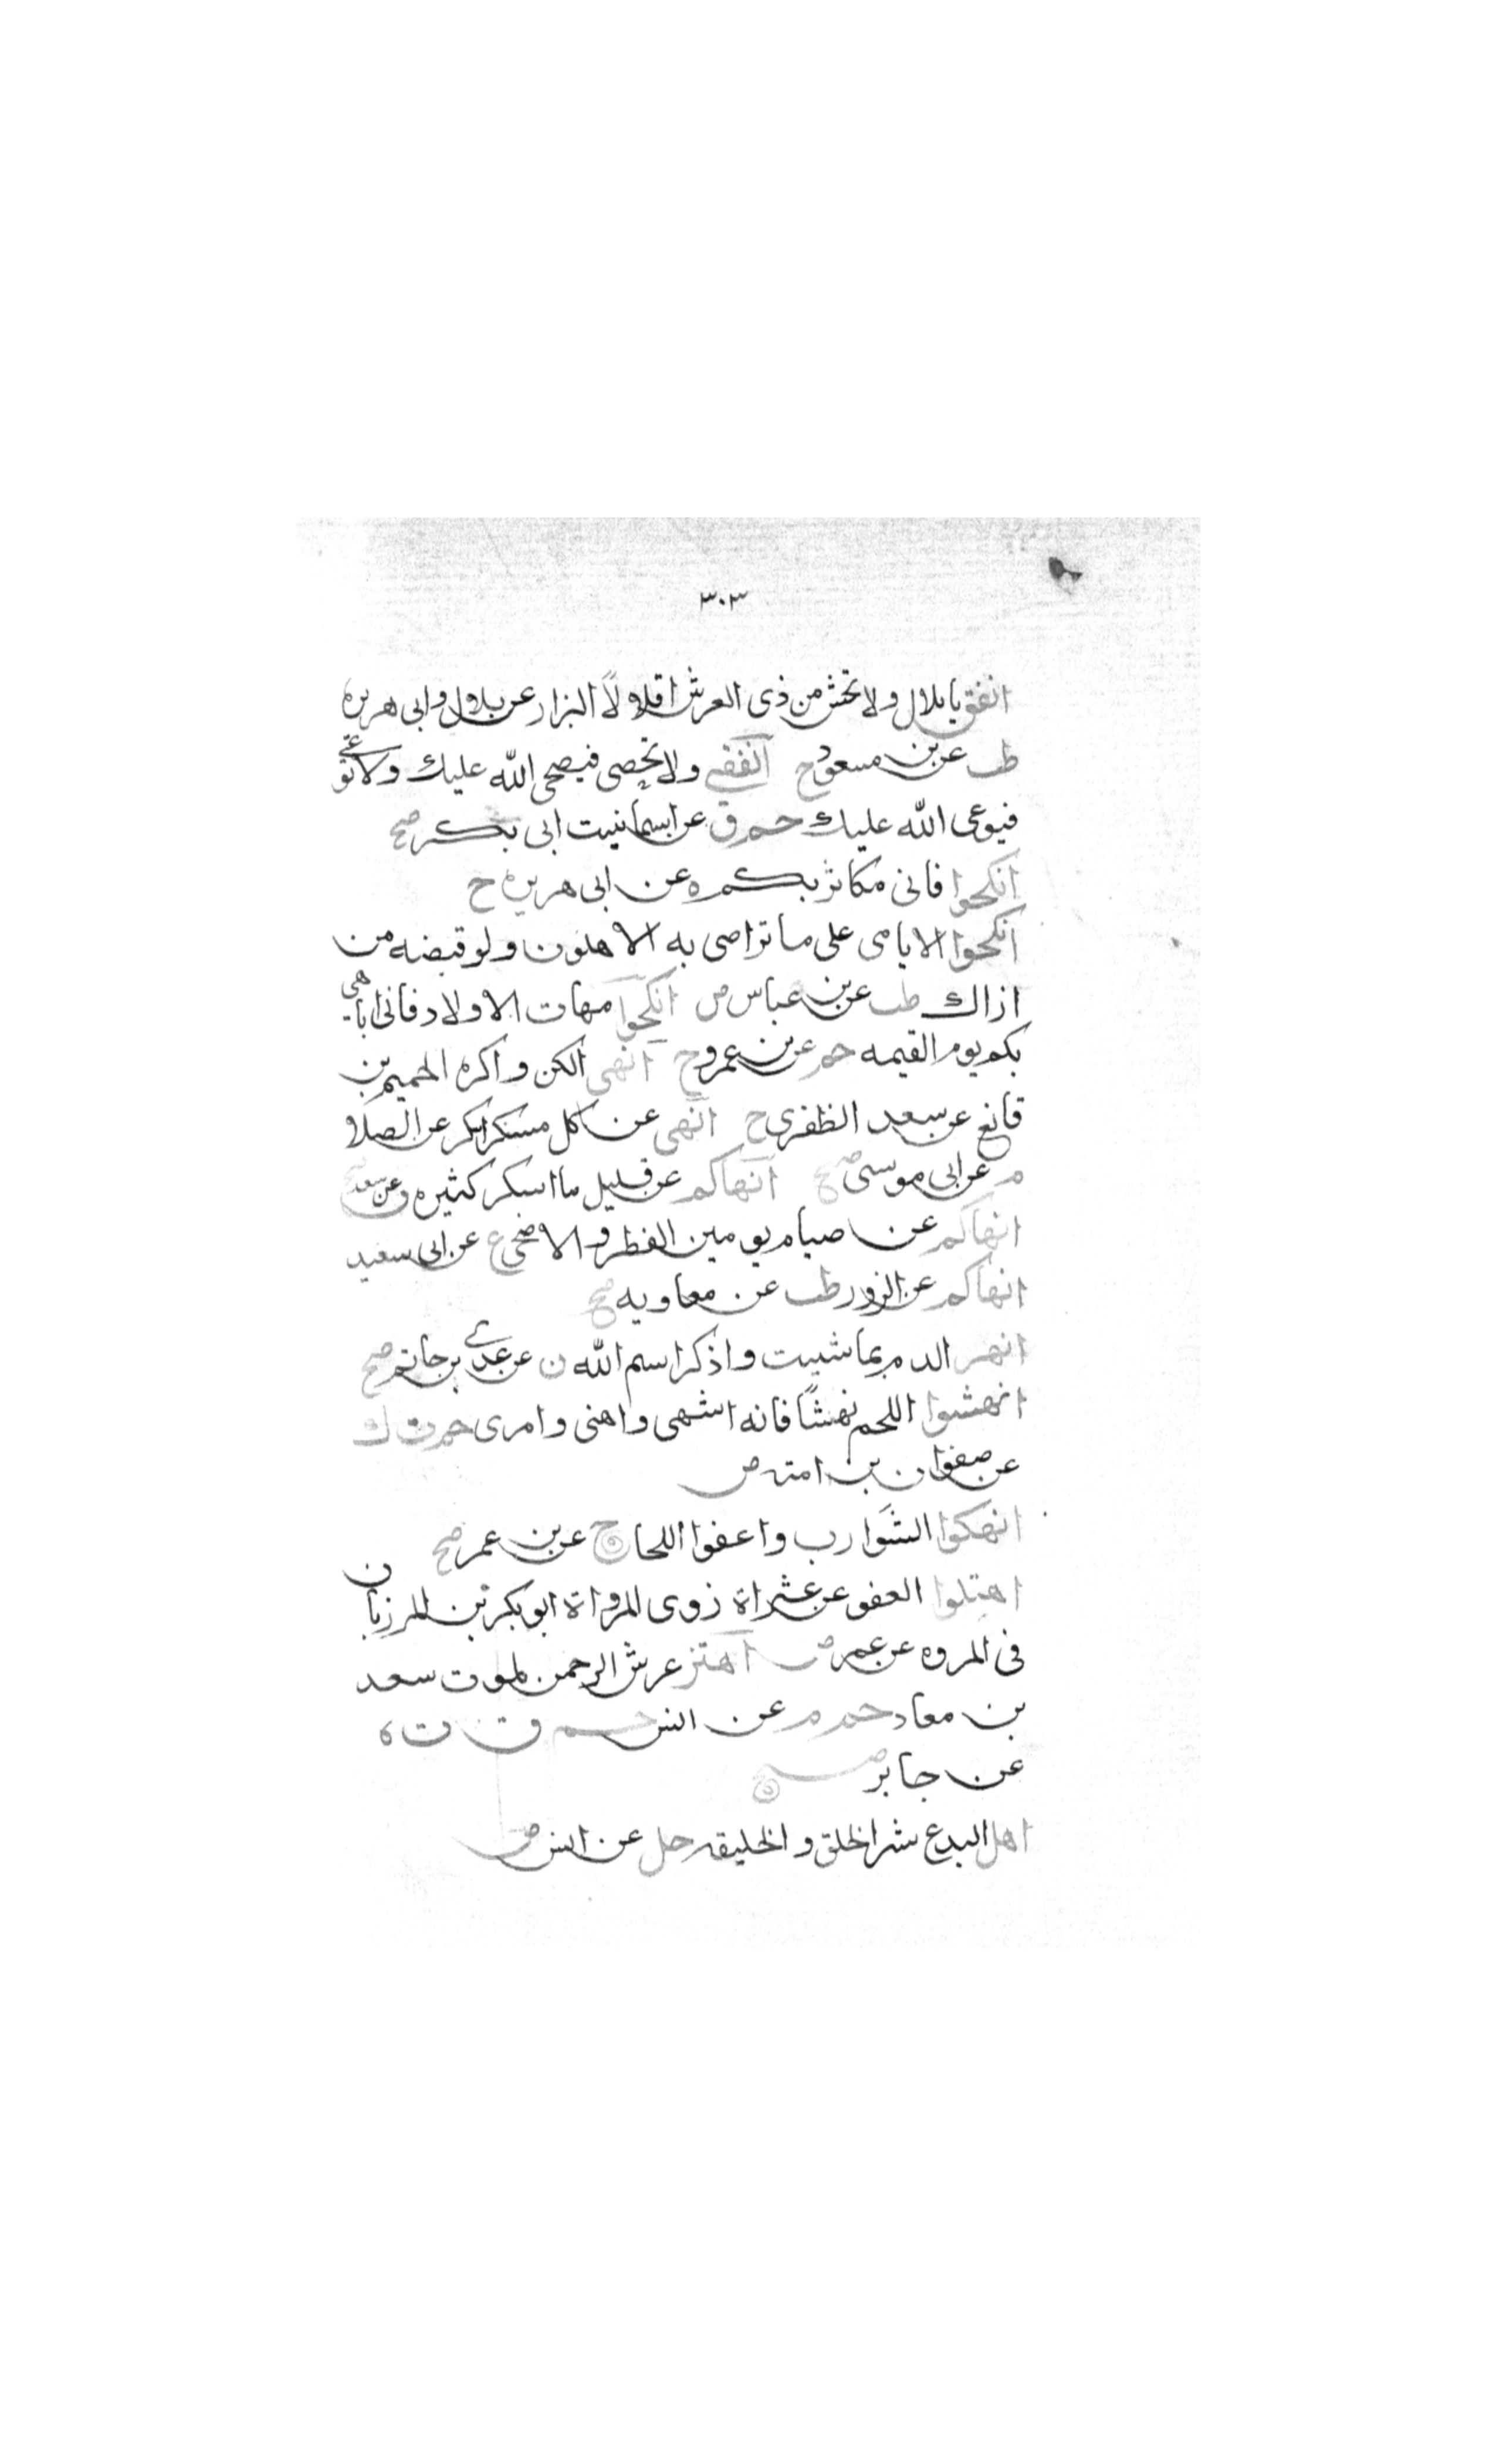 ٣٠٣
انفق يا بلال ولا تخش من ذى العرش اقلالاً البزار عن بلال وابى هريره
طب عن بن مسعود ح انفقى ولا تحصى فيحصى الله عليك ولا توعى
فيوعى الله عليك حم ق عن اسما بنت ابى بكر صح
انكحوا فانى مكاثر بكم ه عن ابى هريره ح
انكحوا الايامى على ما تراضى به الاهلون ولو قبضه من
اراك طب عن بن عباس ض انكحوا امهات الاولاد فانى اباهى
بكم يوم القيمه حم عن بن عمرو ح انهى الكن واكره الحميم بن
قانع عن سعد الظفرى ح انهى عن كل مسكر اسكر عن الصلاة
م عن ابى موسى صح انهاكم عن قليل ما اسكر كثيره ن عن سعد صح
انهاكم عن صيام يومين الفطر والاضحى ع عن ابى سعيد
انهاكم عن الزور طب عن معاويه صح
انهر الدم بما شيت واذكر اسم الله ن عن عدى بن حاتم صح
انهشوا اللحم نهشاً فانه اشهى واهنى وامرى حم ت ك
عن صفوان بن اميه ض
انهكوا الشوارب واعفوا اللحا خ عن بن عمر صح
اهتبلوا العفو عن عثراة ذوى المرواة ابو بكر بن المرزبان
فى المروه عن عمر ض اهتز عرش الرحمن لموت سعد
بن معاد حم م عن انس حم ق ت ه
عن جابر صح
اهل البدع شر الخلق والخليقه حل عن انس ض